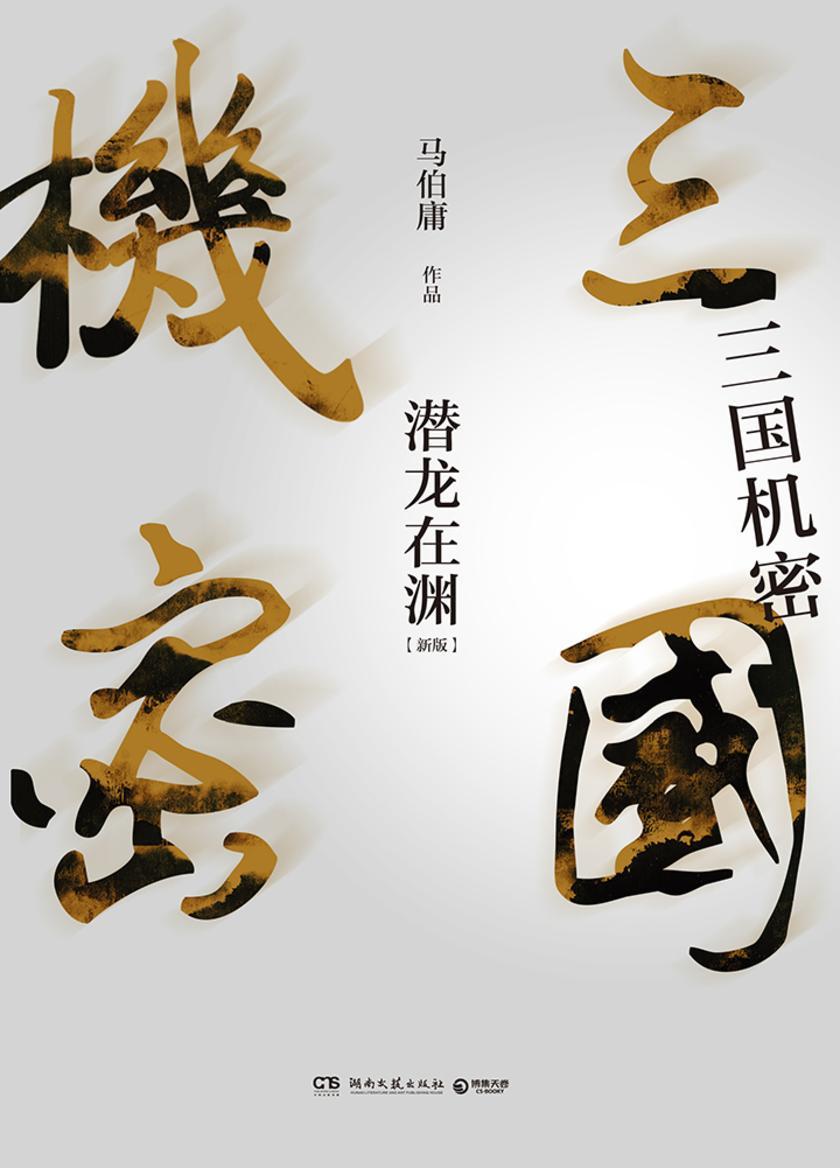 三國
機密
三国机密
马伯庸 作品
潜龙在渊
【新版】
CNS 湖南文艺出版社 博集天卷
HUNAN LITERATURE AND ART PUBLISHING HOUSE
CS-BOOKY